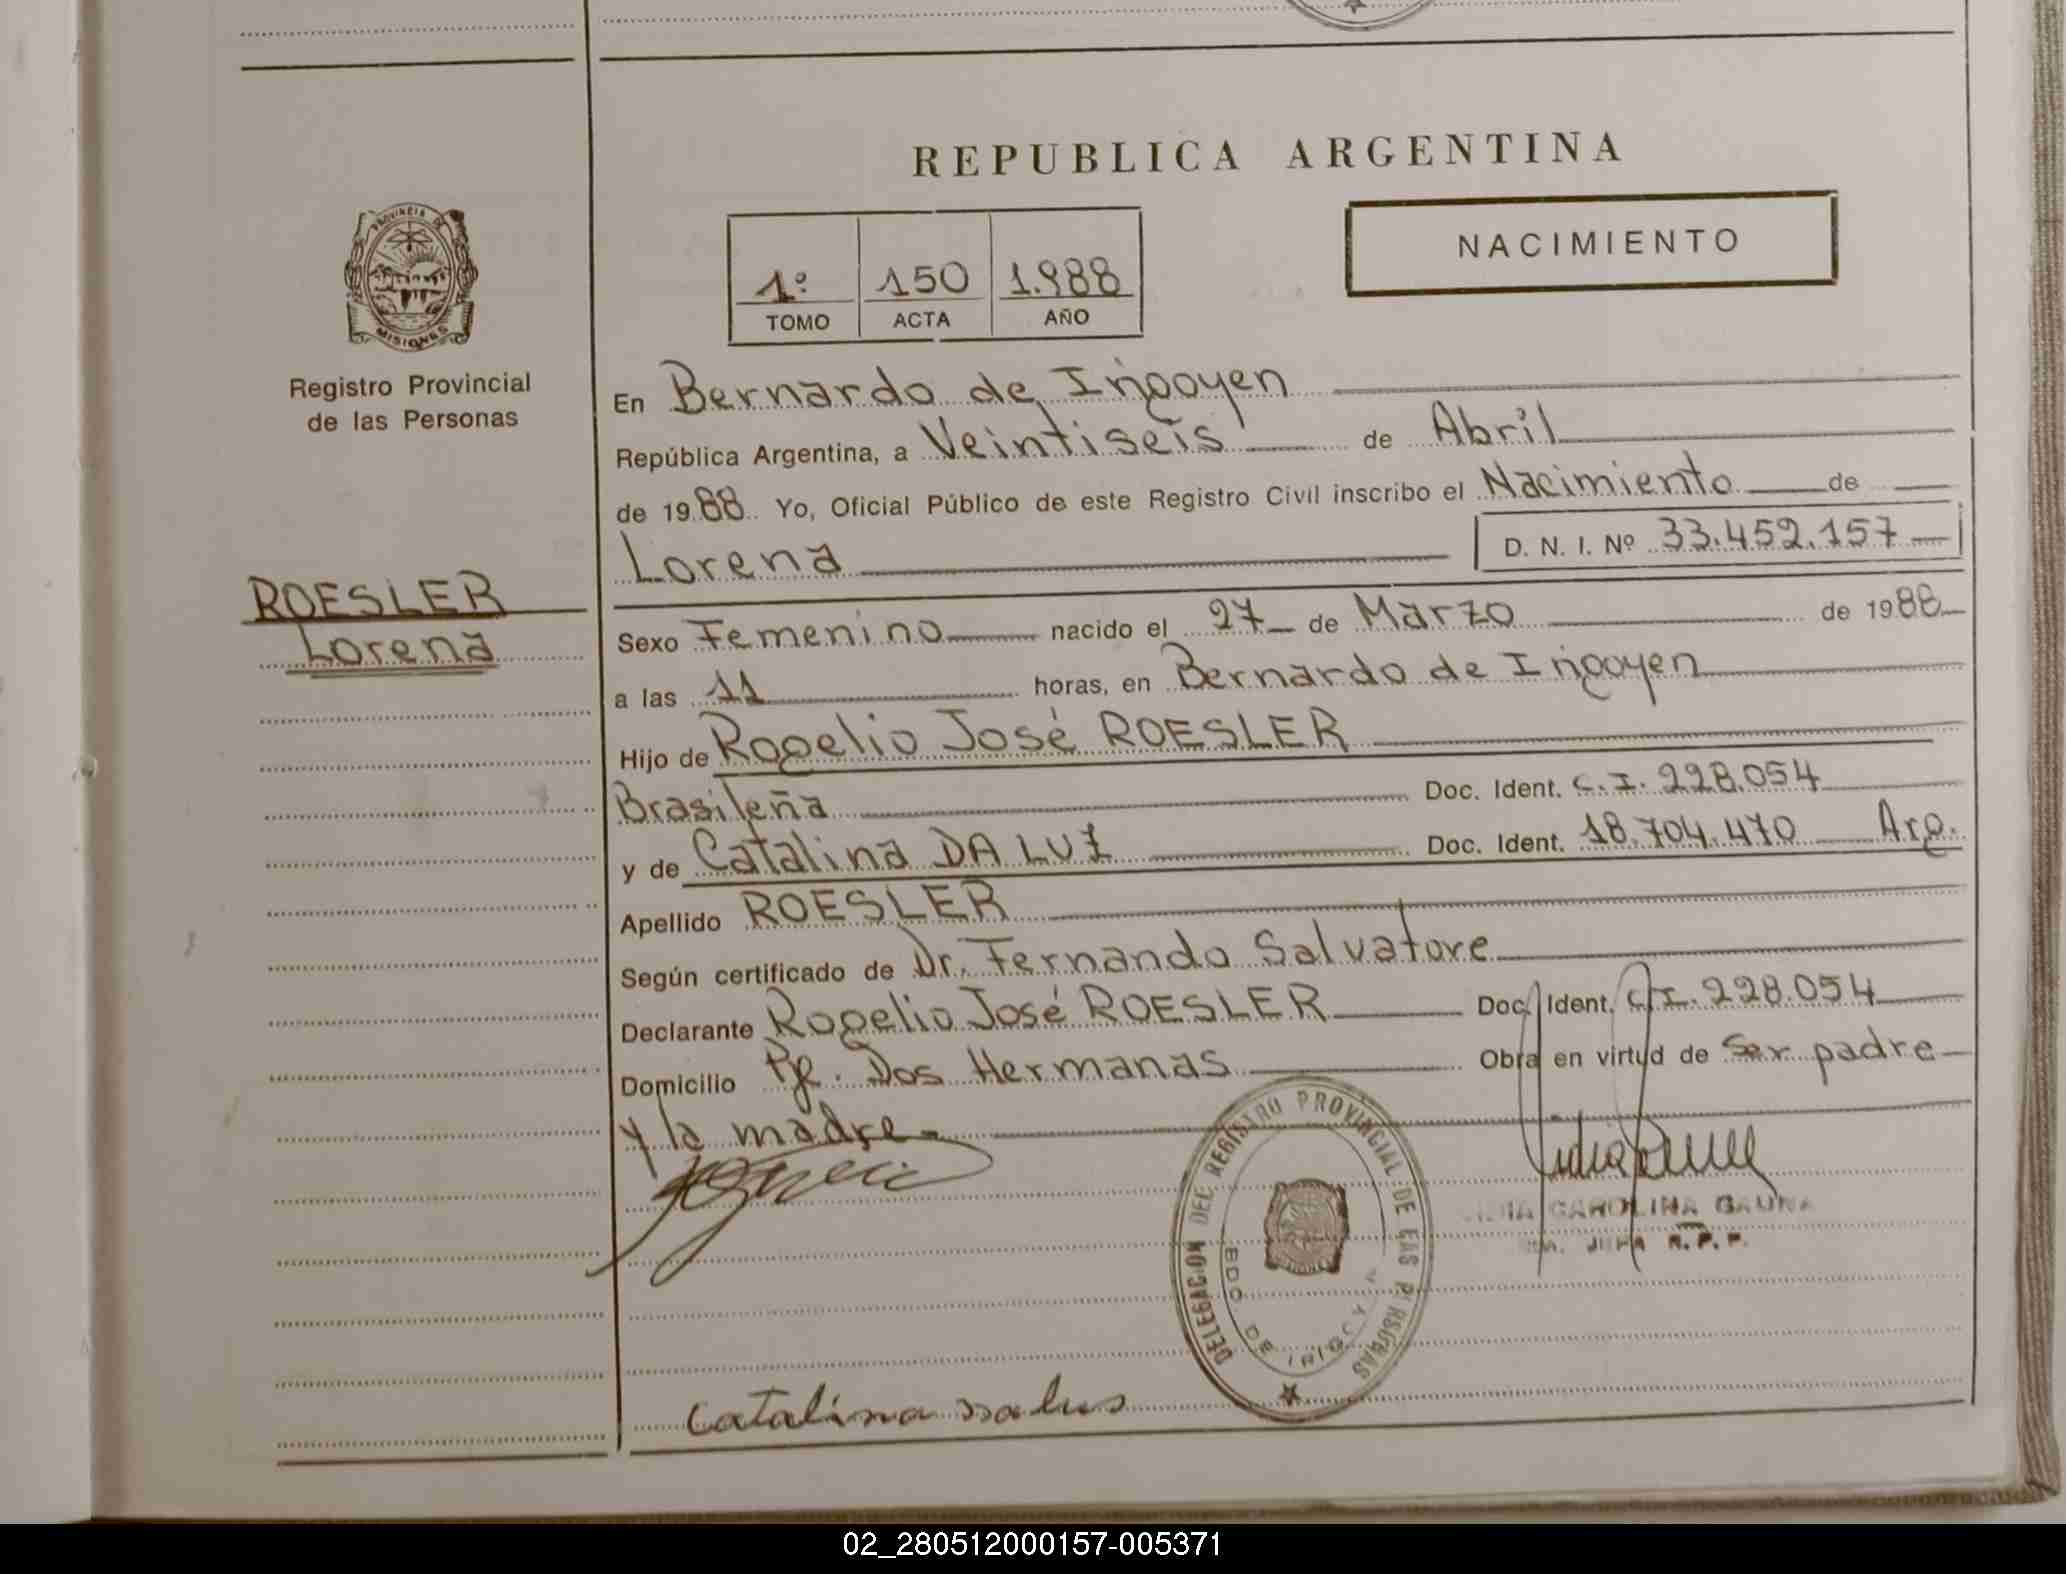 REPUBLICA ARGENTINA
NACIMIENTO
1º 150 1.988
TOMO ACTA AÑO
PROVINCIA DE
MISIONES
Registro Provincial
de las Personas
ROESLER
Lorena
En Bernardo de Irigoyen
República Argentina, a Veintiseis de Abril
de 1988 Yo, Oficial Público de este Registro Civil inscribo el Nacimiento de
Lorena D. N. I. Nº 33.452.157
Sexo Femenino nacido el 27 de Marzo de 1988
a las 11 horas, en Bernardo de Irigoyen
Hijo de Rogelio José ROESLER
Brasileña Doc. Ident. C.I. 228.054
y de Catalina DA LUZ Doc. Ident. 18.704.470 Arg.
Apellido ROESLER
Según certificado de Dr. Fernando Salvatore
Declarante Rogelio José ROESLER Doc. Ident. C.I. 228.054
Domicilio Pje. Dos Hermanas Obra en virtud de Ser padre
y la madre.
DELEGACION DEL REGISTRO PROVINCIAL DE LAS PERSONAS
BDO DE IRIGOYEN
CAROLINA GAUNA
R.P.P.
Catalina dalus
02_280512000157-005371